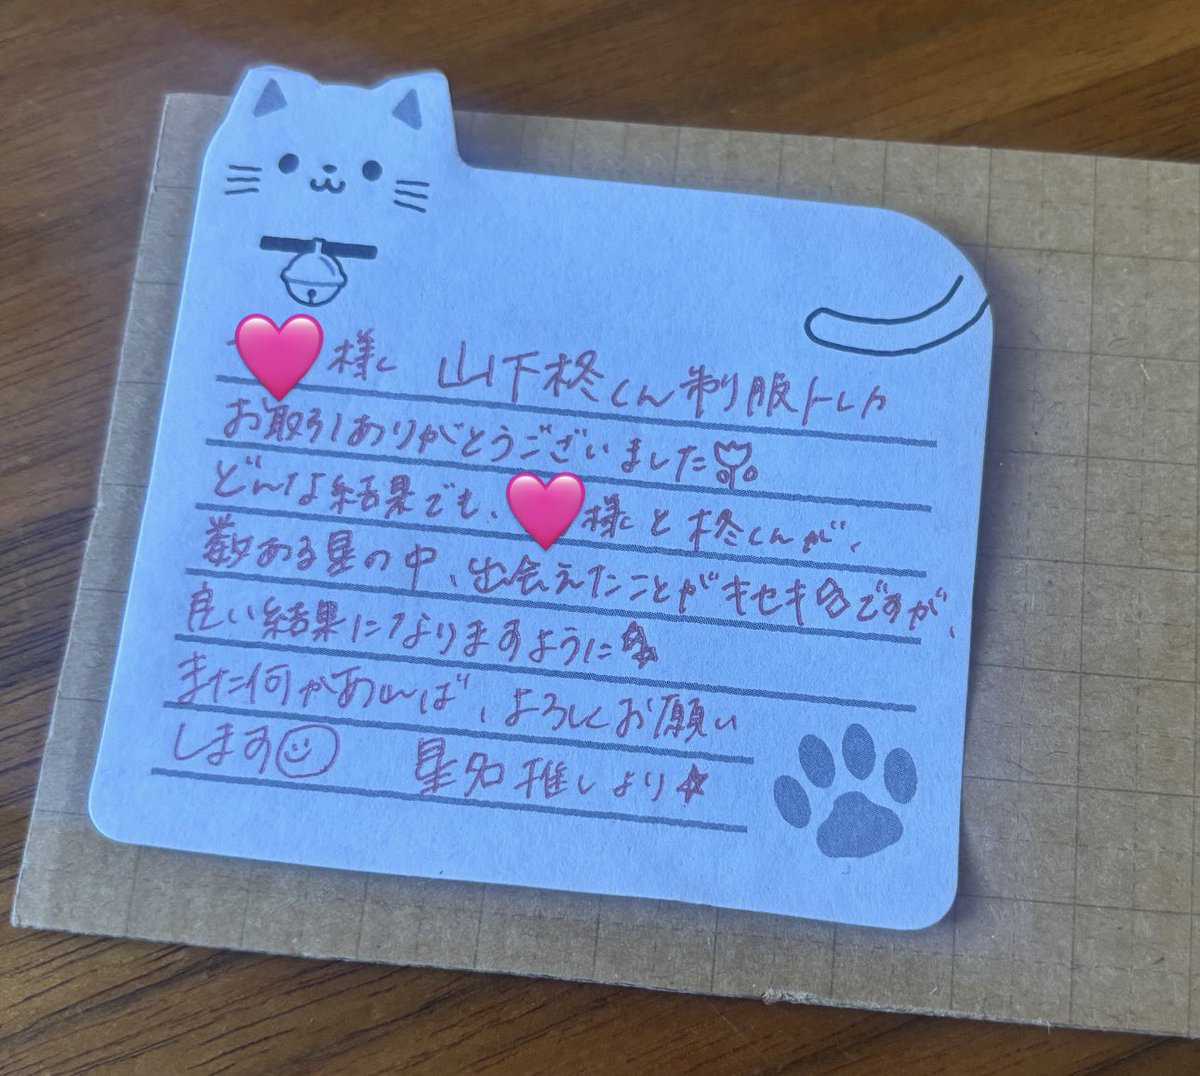 様へ 山下柊くん制服トレカ
お取引ありがとうございました
どんな結果でも、様と柊くんが、
数ある星の中、出会えたことがキセキですが、
良い結果になりますように
また何かあれば、よろしくお願い
します 星名推しより☆